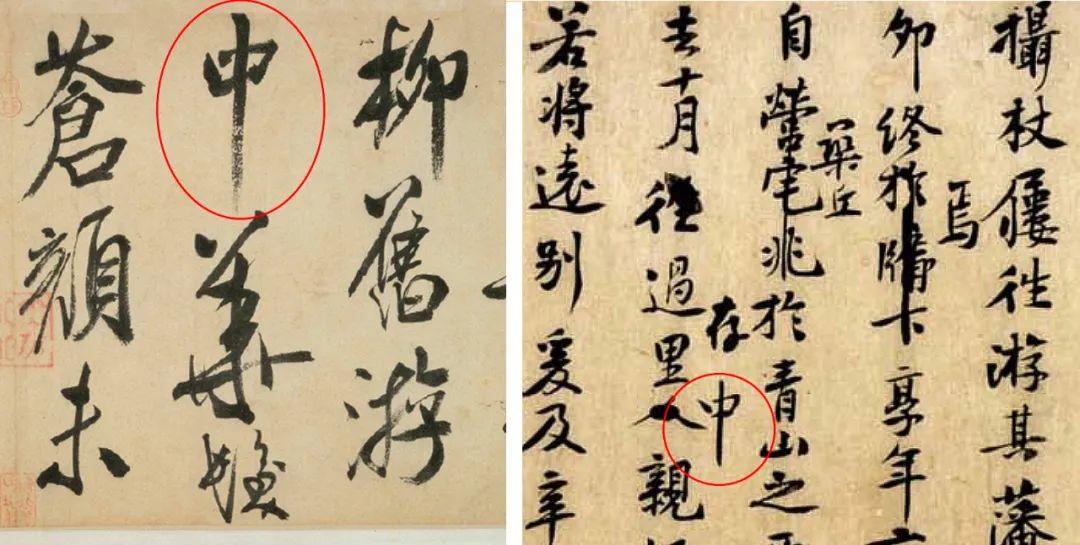 柳舊游
中華
蒼顏未
攝杖屨往游其藩
焉
卯終於牖下享年
自營宅兆於青山之
丘
存中
去十月往過里人親
若將遠別爰及辛